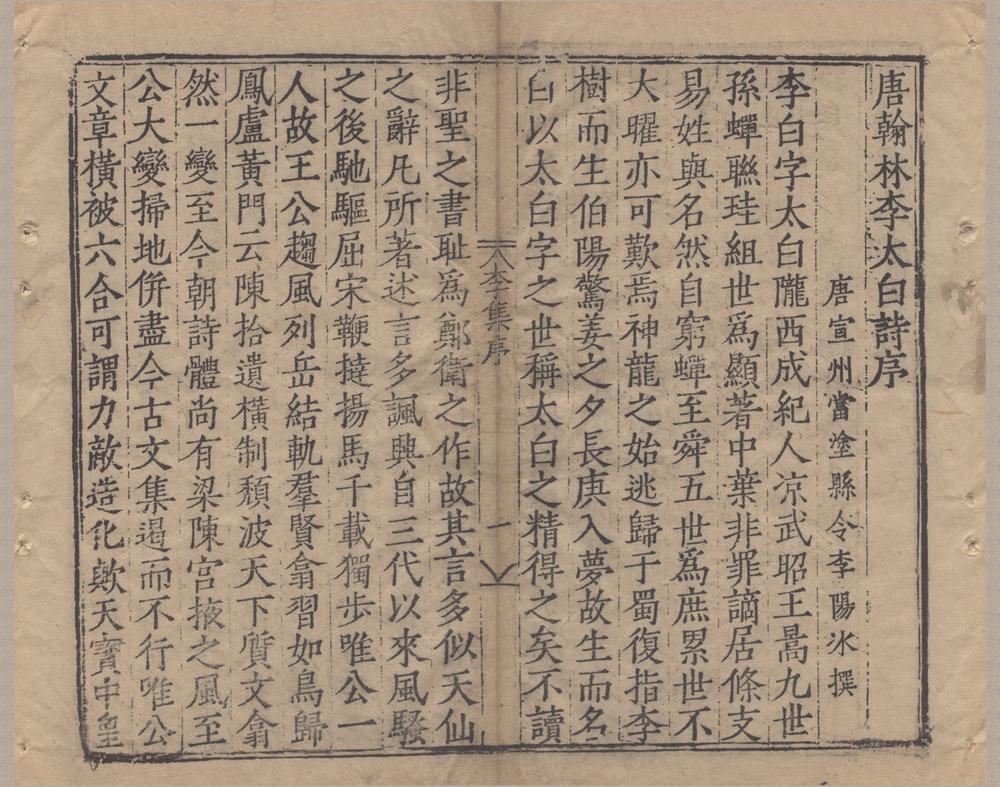 唐翰林李太白詩序
唐宣州當塗縣令李陽冰撰
李白字太白隴西成紀人凉武昭王暠九世
孫蟬聯珪組世爲顯著中葉非罪謫居條支
易姓與名然自窮蟬至舜五世爲庶累世不
大曜亦可歎焉神龍之始逃歸于蜀復指李
樹而生伯陽驚姜之夕長庚入夢故生而名
白以太白字之世稱太白之精得之矣不讀
李集序
一
非聖之書耻爲鄭衛之作故其言多似天仙
之辭凡所著述言多諷興自三代以來風騷
之後馳驅屈宋鞭撻揚馬千載獨步唯公一
人故王公趨風列岳結軌羣賢翕習如鳥歸
鳳盧黃門云陳拾遺橫制頹波天下質文翕
然一變至今朝詩體尚有梁陳宮掖之風至
公大變掃地併盡今古文集遏而不行唯公
文章橫被六合可謂力敵造化歟天寶中皇